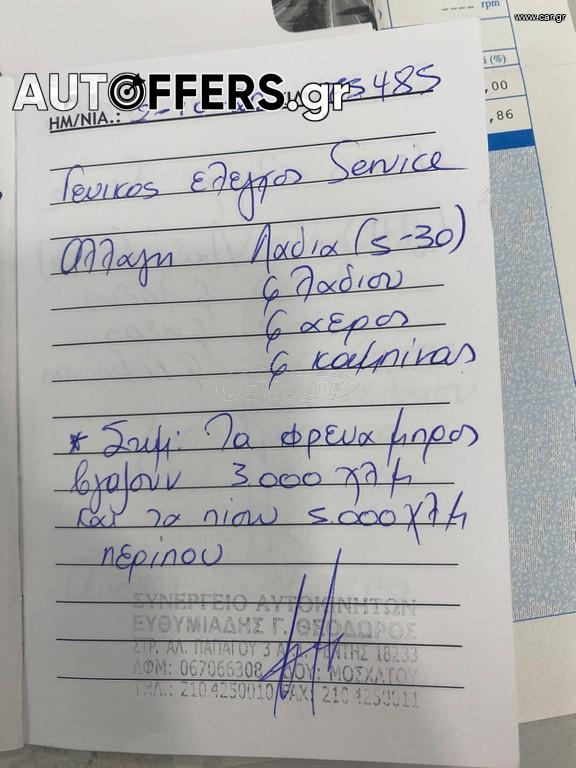 rpm
www.car.gr
ά (%)
,00
,86
AUTOFFERS.gr
ΗΜ/ΝΙΑ.: 5-10 485
Γενικος ελεγχος Service
Αλλαγη Λαδια (5-30)
φ λαδιου
φ αερος
φ καμπινας
* Σημ: Τα φρενα μπρος
βγαζουν 3.000 χλμ
και τα πισω 5.000 χλμ
περιπου
ΣΥΝΕΡΓΕΙΟ ΑΥΤΟΚΙΝΗΤΩΝ
ΕΥΘΥΜΙΑΔΗΣ Γ. ΘΕΟΔΩΡΟΣ
ΣΤΡ. ΑΛ. ΠΑΠΑΓΟΥ 3 ΡΕΝΤΗΣ 18233
ΑΦΜ: 067066308 ΔΟΥ: ΜΟΣΧΑΤΟΥ
ΤΗΛ.: 210 4250010 FAX: 210 4250011